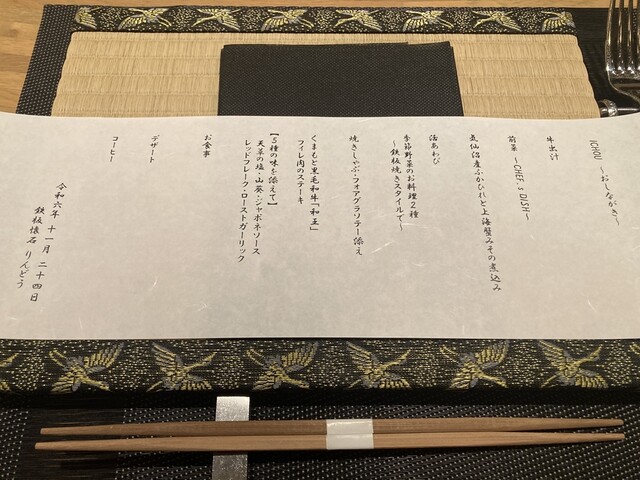 ICHOU ～おしながき～
牛出汁
前菜 ～CHEF's DISH～
気仙沼産ふかひれと上海蟹みその煮込み
活あわび
季節野菜のお料理２種
～鉄板焼きスタイルで～
焼きしゃぶ・フォアグラソテー添え
くまもと黒毛和牛「和王」
フィレ肉のステーキ
【５種の味を添えて】
天草の塩・山葵・ジャポネソース
レッドフレーク・ローストガーリック
お食事
デザート
コーヒー
令和六年 十一月 二十四日
鉄板懐石 りんどう